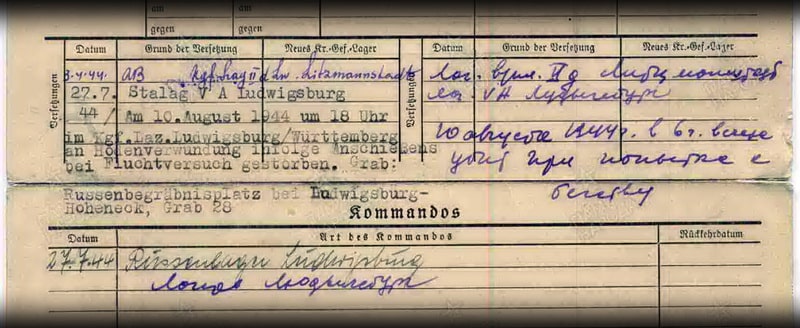 am am
gegen gegen
Versetzungen Datum Grund der Versetzung Neues Kr.-Gef.-Lager Versetzungen Datum Grund der Versetzung Neues Kr.-Gef.-Lager
3.4.44. AB Kgf. Lag. II d. Lw. Litzmannstadt Лаг. II д
27.7. Stalag V A Ludwigsburg VA Лудвигсбург
44/ Am 10.August 1944 um 18 Uhr
im Kgf.Laz.Ludwigsburg/Württemberg 10 августа 1944 г. в 6 г.
an Hodenverwundung infolge Anschießens убит при попытке к
bei Fluchtversuch gestorben. Grab:
Russenbegräbnisplatz bei Ludwigsburg- бегству
Hoheneck, Grab 28
Kommandos
Datum Art des Kommandos Rückkehrdatum
27.7.44 Russenlager Ludwigsburg
Людвигсбург